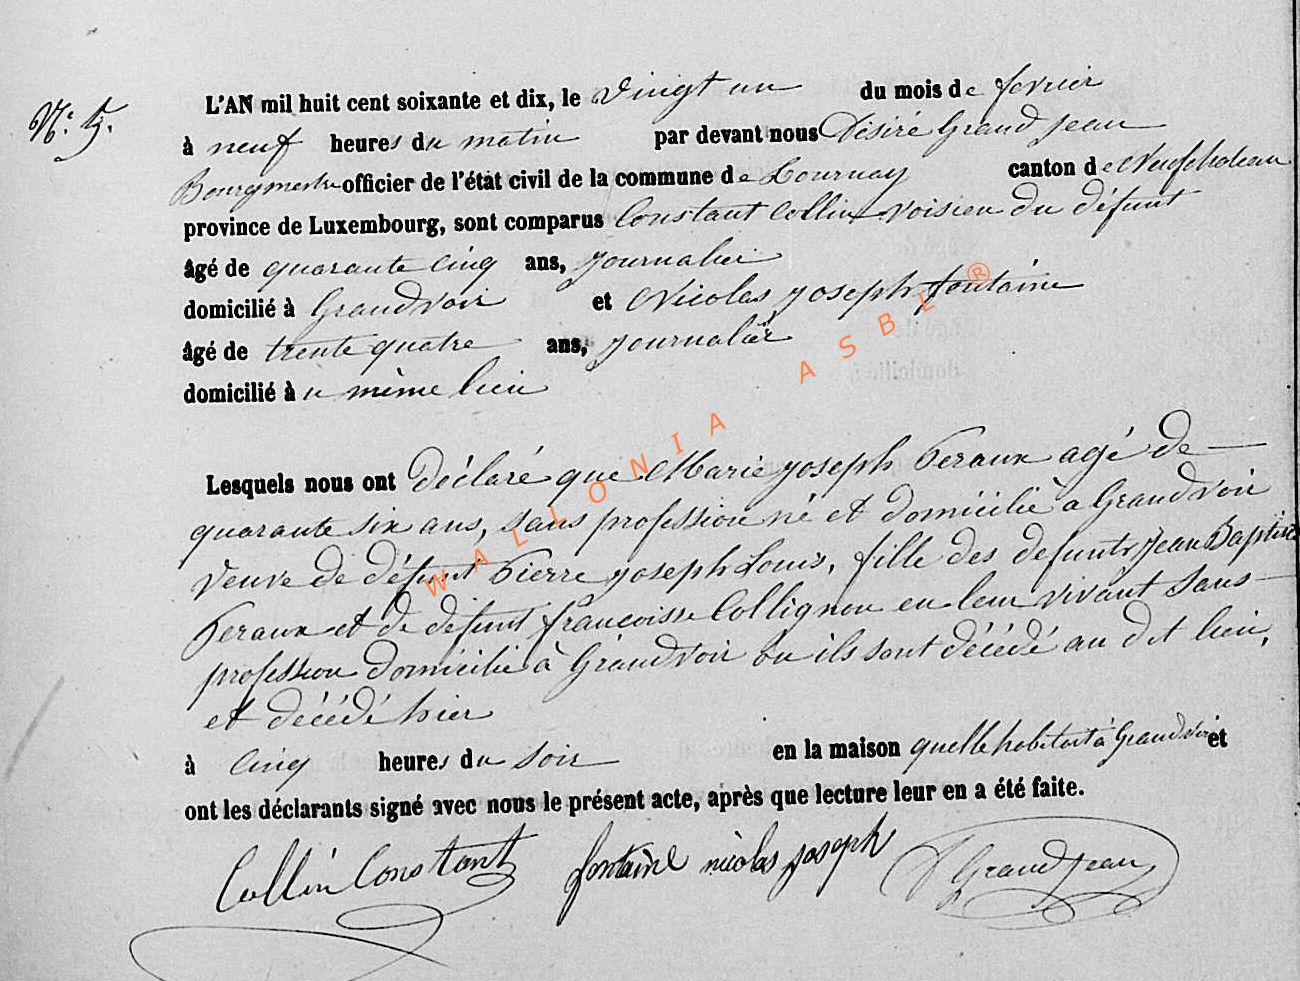 N° 5.
L'AN mil huit cent soixante et dix, le vingt un du mois de fevrier
à neuf heures du matin par devant nous Désiré Grand jean
Bourgmestre officier de l'état civil de la commune de Tournay canton de Neufchateau
province de Luxembourg, sont comparus Constant Collin voisien du défunt
âgé de quarante cinq ans, journalier
domicilié à Grandvoir et Nicolas joseph fontaine
âgé de trente quatre ans, journalier
domicilié à u même lieu
Lesquels nous ont déclaré que Marie joseph Peraux agé de
quarante six ans, sans profession né et domicilié a Grandvoir
veuve de défunt Pierre joseph Louis, fille des defunts Jean Baptiste
Peraux et de defunt francoisse Collignon en leur vivant sans
profession domicilié à Grandvoir ou ils sont décédé au dit lieu,
et décédé hier
à cinq heures du soir en la maison quelle habitait à Grandvoir et
ont les déclarants signé avec nous le présent acte, après que lecture leur en a été faite.
Collin Constant fontaine nicolas joseph D Grandjean
WALLONIA ASBL ®